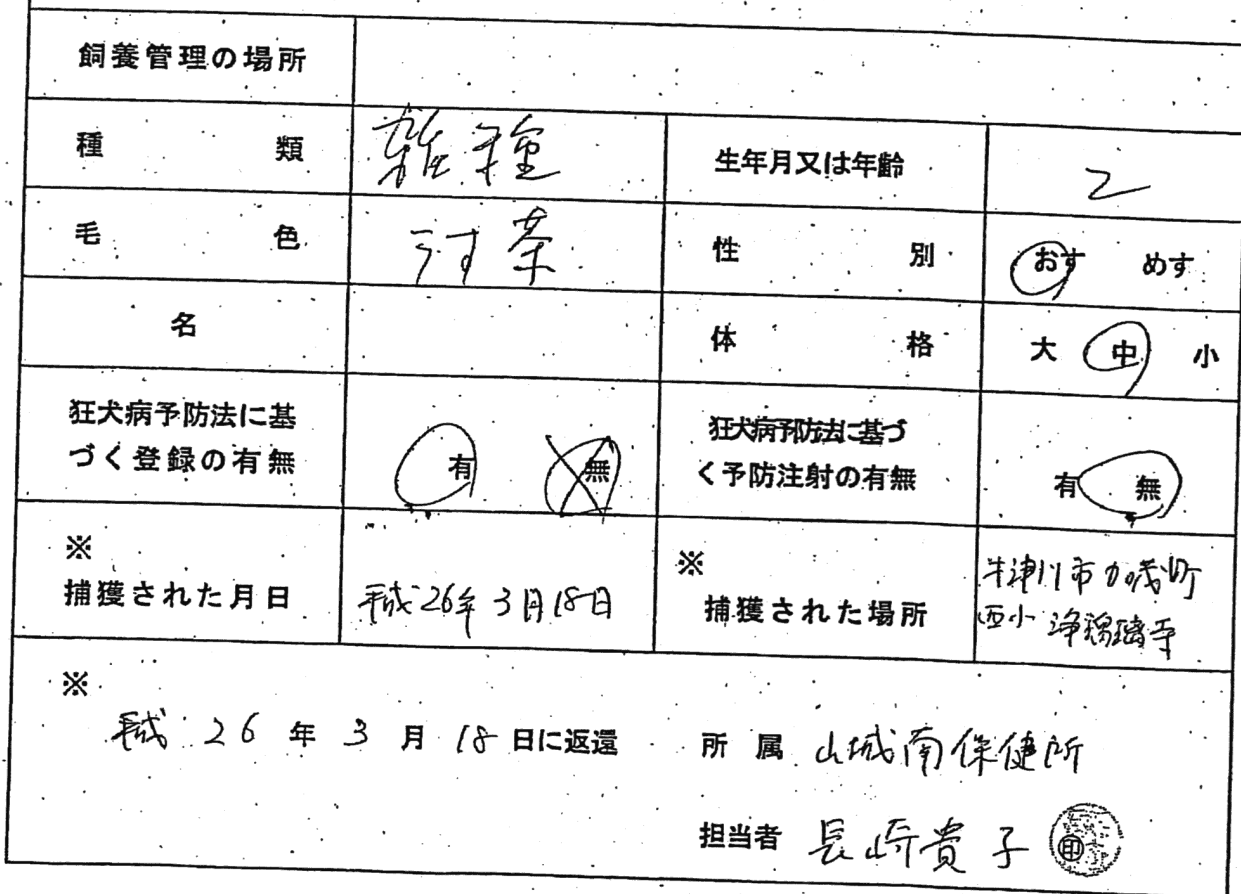 飼養管理の場所
種類 雑種 生年月又は年齢 2
毛色 うす茶 性別 おす めす
名 体格 大 中 小
狂犬病予防法に基づく登録の有無 有 無
狂犬病予防法に基づく予防注射の有無 有 無
※
捕獲された月日 平成26年3月18日
※
捕獲された場所
木津川市加茂町
西小 浄瑠璃寺
※
平成 26 年 3 月 18 日に返還 所属 山城南保健所
担当者 長崎貴子 印